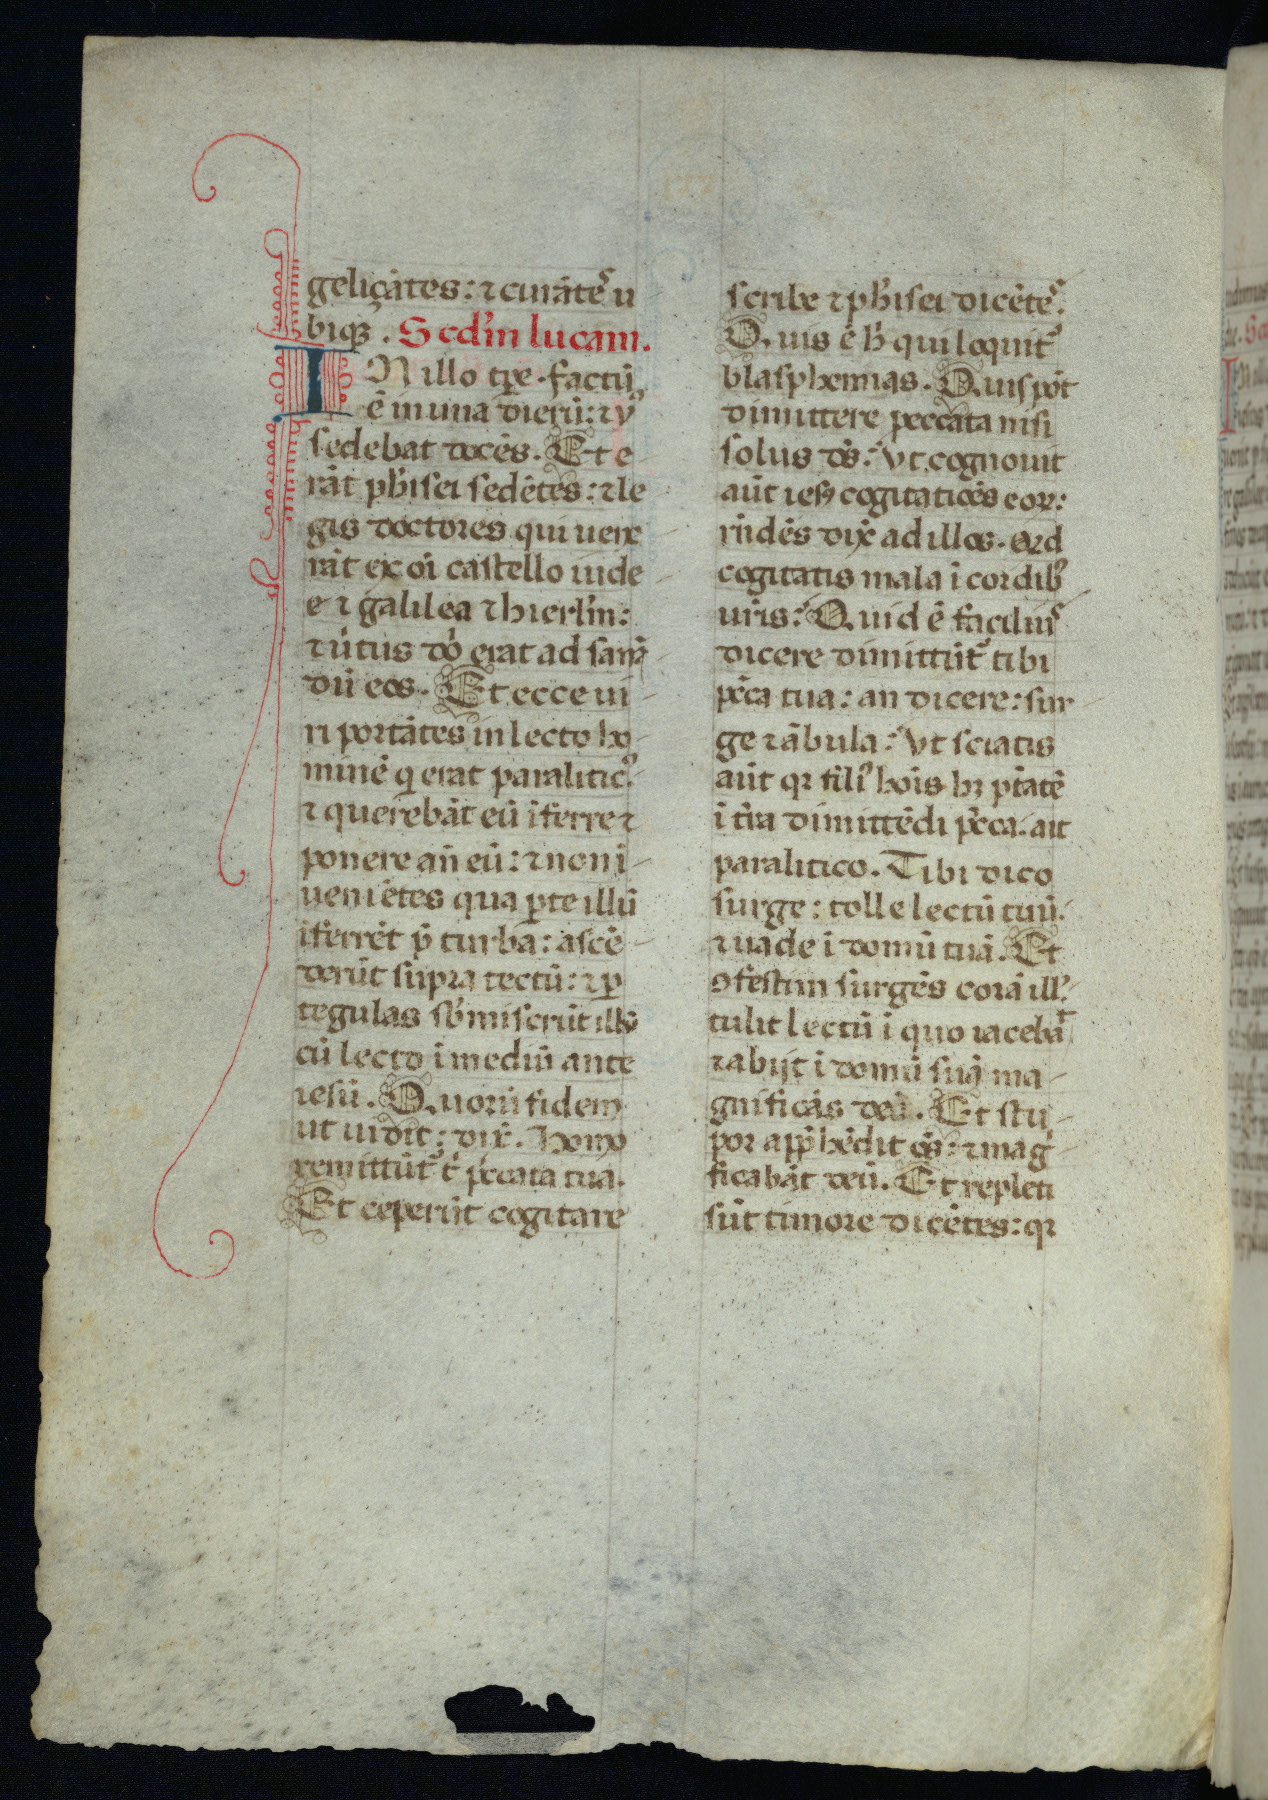 geliçātes: ⁊ curātes u
biqꝫ. Scd'm lucam.
IN illo tꝑe. factū
ē in una dierū: ⁊ yͨ
sedebat docēs. Et e
rāt ph'isei sedētes: ⁊ le
gis doctores qui uene
rāt ex oī castello iude
e ⁊ galilea ⁊ hierl'm:
⁊ ūtus dō erat ad sanā
dū eos. Et ecce ui
ri portātes in lecto ho
minē q̨ erat paralitic᾽.
⁊ querebāt eū īferre ⁊
ponere añ eū: ⁊ non ī
ueniētes qua ꝑte illū
īferrēt p̄ turba: ascē
derūt supra tectū: ⁊ ꝑ
tegulas sb'miserūt illū
cū lecto ī mediū ante
iesū. Quorū fidem
ut uidit: dix̄. homo
remittūt᷑ t' pc̄cata tua.
Et ceperūt cogitare
scribe ⁊ ph'isei dicētes.
Quis ē h' qui loquit᷑
blasphemias. Quis pōt
dimittere peccata nisi
solus ds̄: Vt cognouit
aūt iesꝰ cogitatiōes eoꝝ:
rn̄dēs dix̄ ad illos. Qd
cogitatis mala ī cordibꝰ
ur̄is: Quid ē faciliuˢ
dicere dimittūt᷑ tibi
pc̄ca tua: an dicere: sur
ge ⁊ ābula: Vt sciatis
aūt qꝛ fili᾽ hoīs hꝫ ptātē
ī tr̄a dimittēdi pc̄ca. ait
paralitico. Tibi dico
surge: tolle lectū tuū.
⁊ uade ī domū tuā. Et
ꝯfestim surgēs corā ill᾽.
tulit lectū ī quo iacebāt
⁊ abijt ī domū suā ma
gnificās deū. Et stu
por app̄hēdit oēs: ⁊ mag
ficabāt deū. Et repleti
sūt timore dicētes: qꝛ